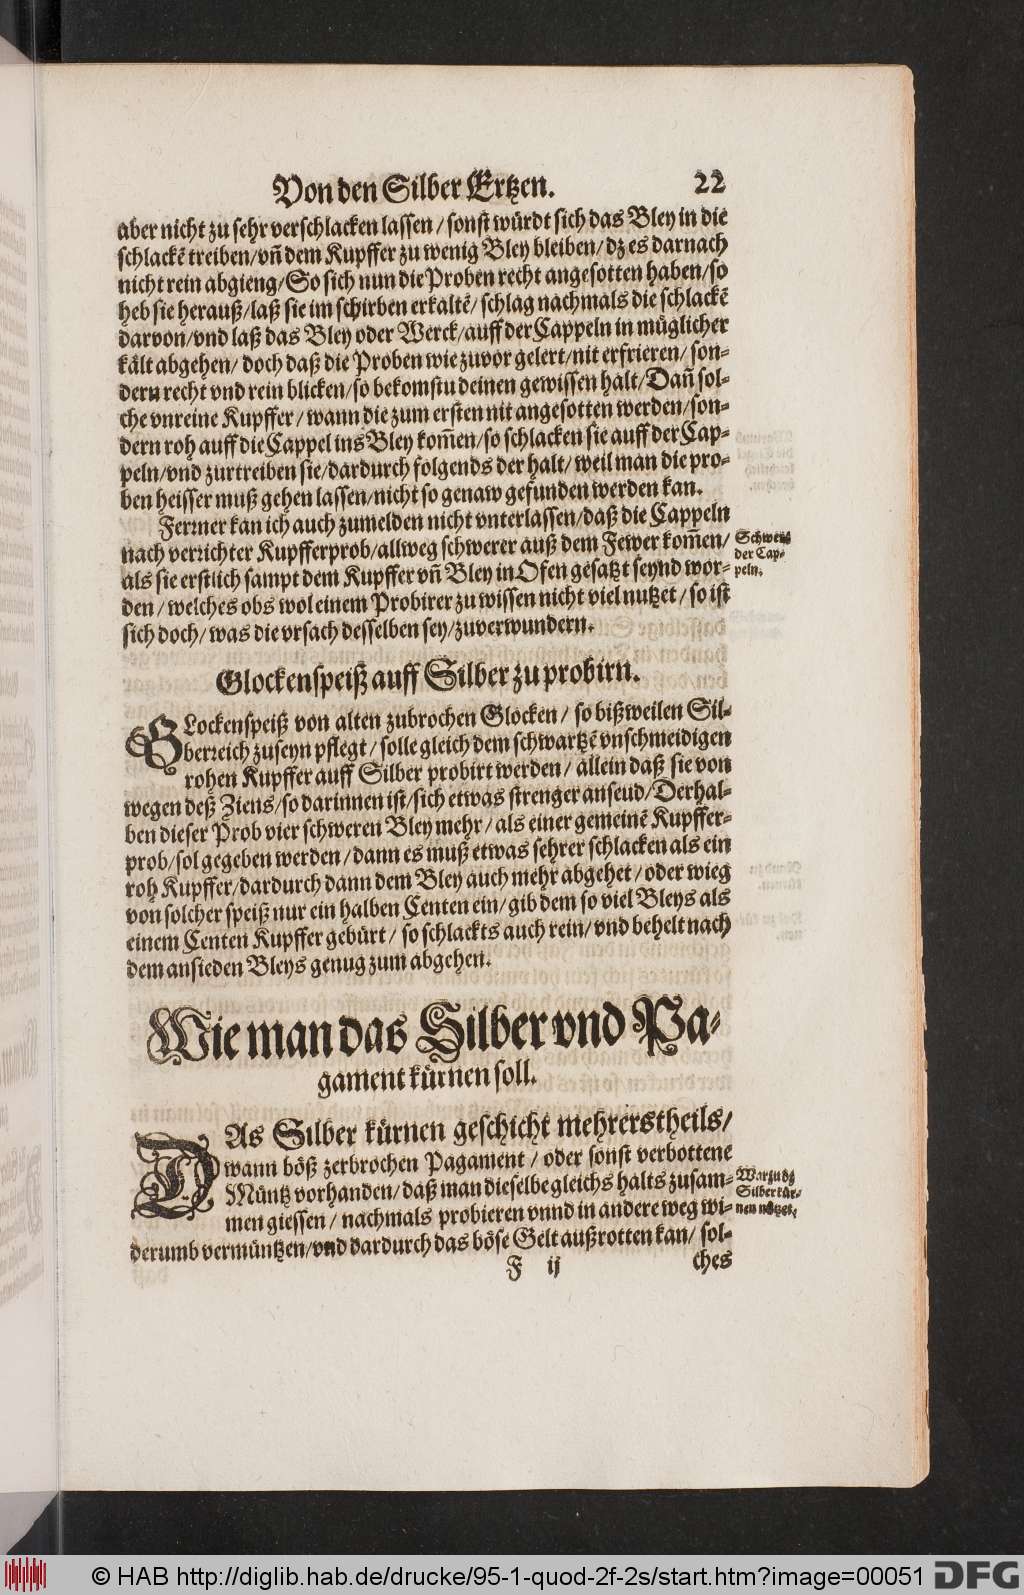 Von den Silber Ertzen. 22
aber nicht zu sehr verschlacken lassen / sonst würdt sich das Bley in die
schlackē treiben/vn̄ dem Kupffer zu wenig Bley bleiben/dz es darnach
nicht rein abgieng/So sich nun die Proben recht angesotten haben/so
heb sie herauß/laß sie im schirben erkaltē/ schlag nachmals die schlackē
darvon/vnd laß das Bley oder Werck/auff der Cappeln in müglicher
kält abgehen/ doch daß die Proben wie zuvor gelert/nit erfrieren/ son-
dern recht vnd rein blicken/so bekomstu deinen gewissen halt/Dan̄ sol-
che vnreine Kupffer / wann die zum ersten nit angesotten werden/son-
dern roh auff die Cappel ins Bley kom̄en/so schlacken sie auff der Cap-
peln/vnd zurtreiben sie/dardurch folgends der halt/ weil man die pro-
ben heisser muß gehen lassen/nicht so genaw gefunden werden kan.
Ferrner kan ich auch zumelden nicht vnterlassen/daß die Cappeln
nach verrichter Kupfferprob/allweg schwerer auß dem Fewer kom̄en/
Schwere
der Cap-
peln.
als sie erstlich sampt dem Kupffer vn̄ Bley in Ofen gesatzt seynd wor-
den / welches obs wol einem Probirer zu wissen nicht viel nutzet / so ist
sich doch/ was die vrsach desselben sey/zuverwundern.
Glockenspeiß auff Silber zu probirn.
GLockenspeiß von alten zubrochen Glocken / so bißweilen Sil-
berreich zuseyn pflegt / solle gleich dem schwartzē vnschmeidigen
rohen Kupffer auff Silber probirt werden / allein daß sie von
wegen deß Ziens/so darinnen ist/sich etwas strenger anseud/Derhal-
ben dieser Prob vier schweren Bley mehr / als einer gemeinē Kupffer-
prob/sol gegeben werden / dann es muß etwas sehrer schlacken als ein
roh Kupffer/dardurch dann dem Bley auch mehr abgehet / oder wieg
von solcher speiß nur ein halben Centen ein / gib dem so viel Bleys als
einem Centen Kupffer gebürt / so schlackts auch rein/vnd behelt nach
dem ansieden Bleys genug zum abgehen.
Wie man das Silber vnd Pa-
gament kürnen soll.
DAs Silber kürnen geschicht mehrerstheils/
wann böß zerbrochen Pagament / oder sonst verbottene
Müntz vorhanden/daß man dieselbe gleichs halts zusam-
Warzu dz
Silber kür-
nen nützet.
men giessen / nachmals probieren vnnd in andere weg wi-
derumb vermüntzen/vnd dardurch das böse Gelt außrotten kan/ sol-
F ij ches
© HAB http://diglib.hab.de/drucke/95-1-quod-2f-2s/start.htm?image=00051 DFG